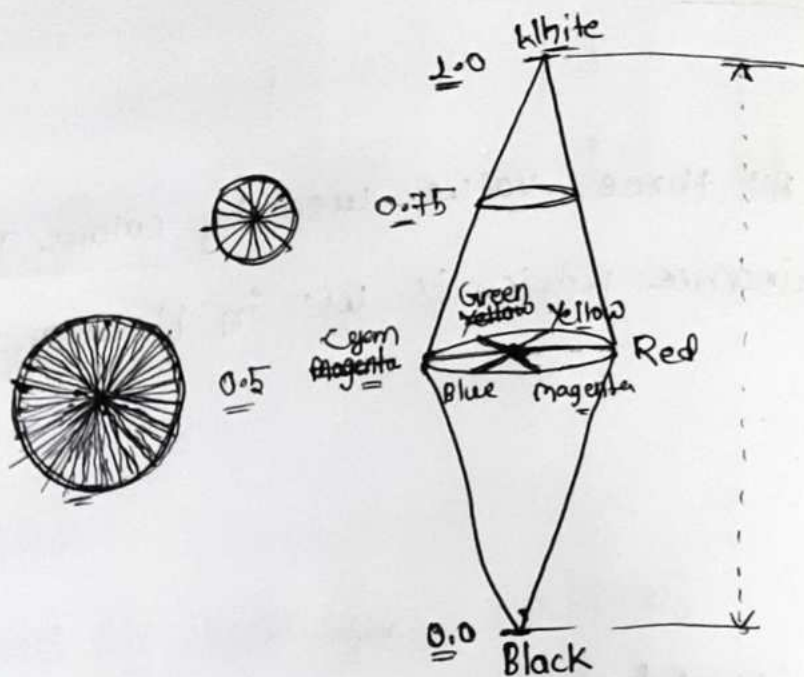 White
1.0
0.75
Green
Yellow Yellow
Cyan
Magenta
Red
0.5
Blue
Magenta
0.0
Black